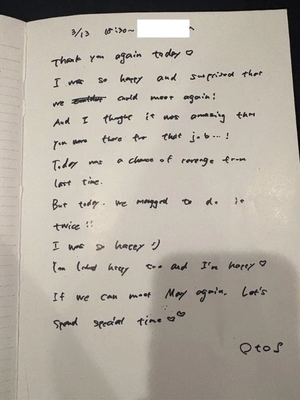 3/13 15:30~
Thank you again today♡
I was so happy and surprised that
we could meet again!
And I thought it was amazing that
you were there for that job...!
Today was a chance of revenge from
last time.
But today, we managed to do it
twice!!
I was so happy :)
You looked happy too and I'm happy♡
If we can meet May again. Let's
spend special time♡♡